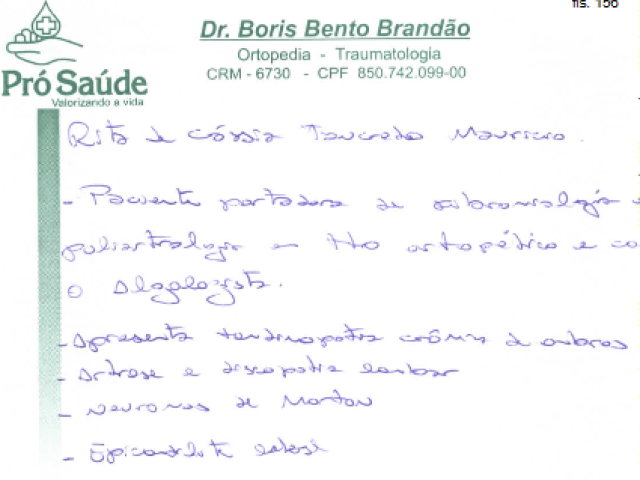 fls. 156
Dr. Boris Bento Brandão
Ortopedia - Traumatologia
CRM - 6730 - CPF 850.742.099-00
Pró Saúde
Valorizando a vida
Rita de Cássia Tancredo Mauricio.
- Paciente portadora de fibromialgia e
poliartralgia em tto ortopédico e co
o Algologista.
- Apresenta tendinopatia crônica de ombros
- Artrose e discopatia lombar
- Neuromas de Morton
- Epicondilite lateral